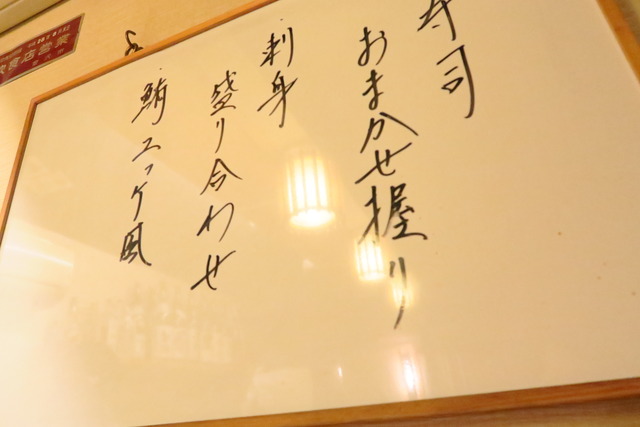 寿司
おまかせ握り
刺身
盛り合わせ
鮪ユッケ風
飲食店営業